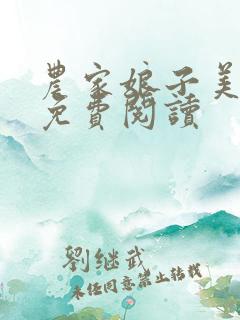 農家娘子美
免費閱讀
劉继武
未经同意禁止转载